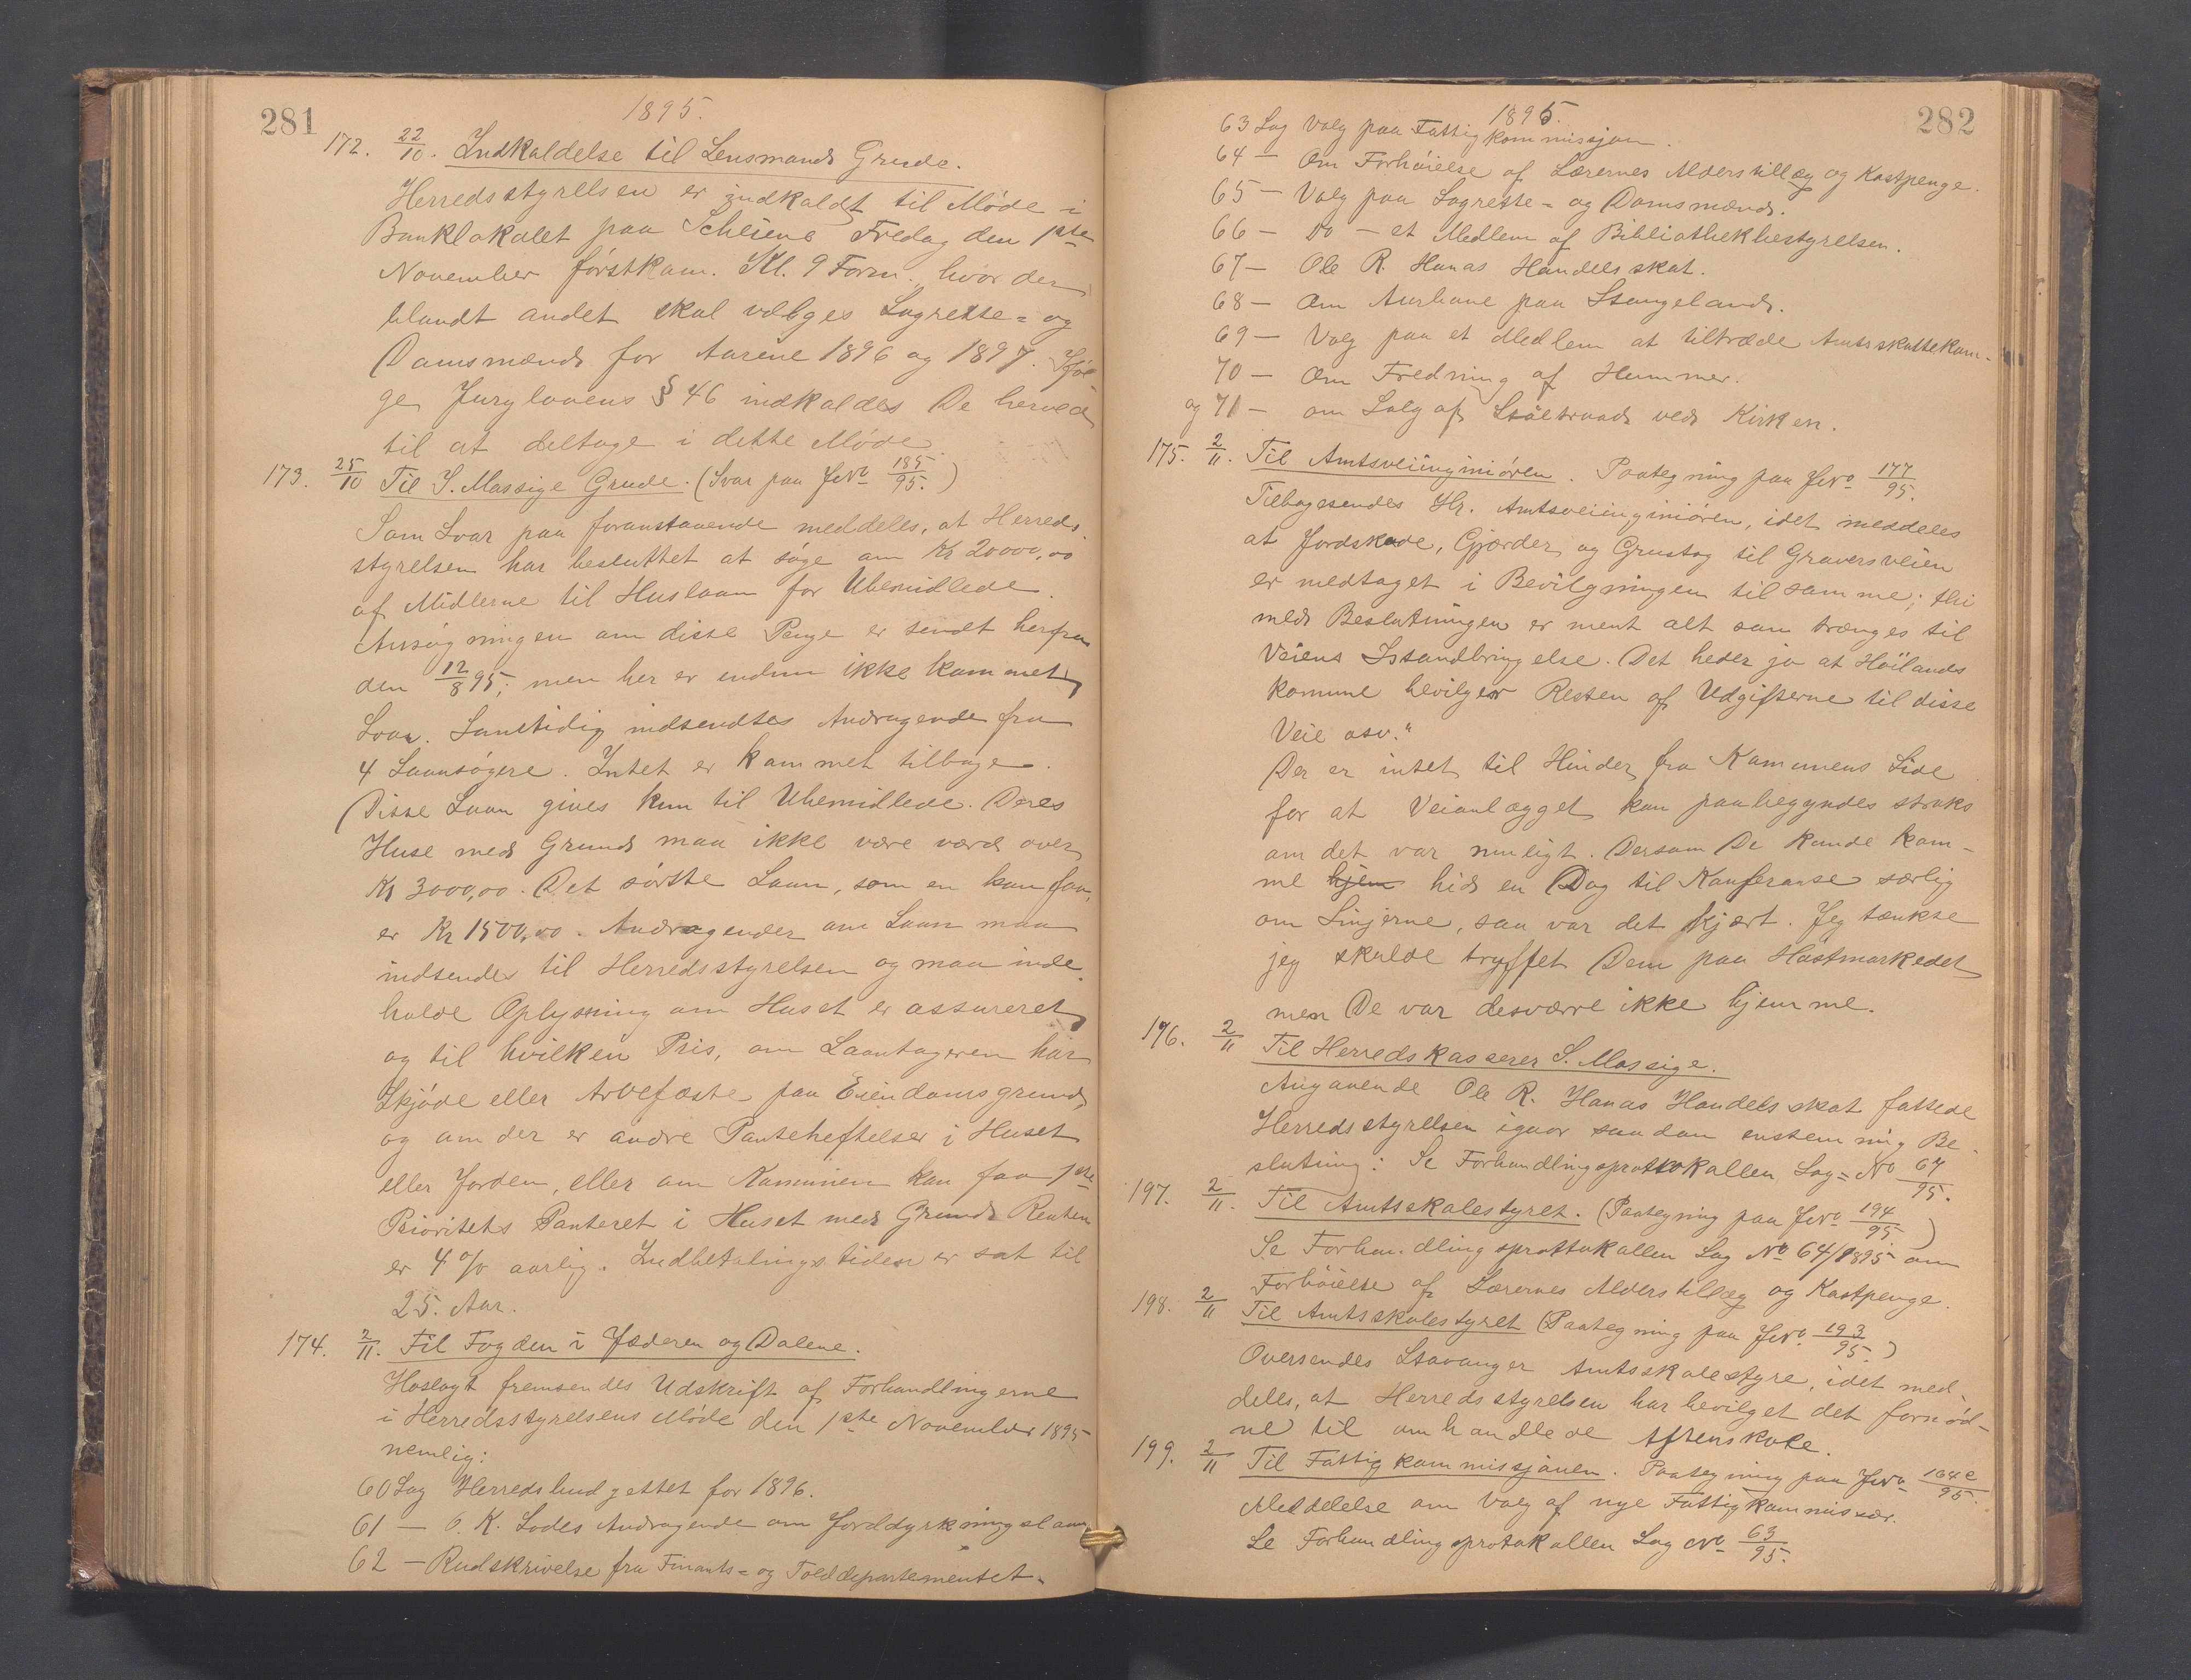 281
1895.
172. 22/10. Indkaldelse til Lensmand Grude.
Herredsstyrelsen er indkaldt til Møde i
Banklokalet paa Scheiene Fredag den 1ste
November førstkom. Kl. 9 Form. hvor der
blandt andet skal vælges Lagrette= og
Domsmænd for Aarene 1896 og 1897. Iføl-
ge Jurylovens § 46 indkaldes De herved
til at deltage i dette Møde.
173. 25/10 Til S. Massige Grude. (Svar paa JNo 185/95.)
Som Svar paa foranstaaende meddeles, at Herreds-
styrelsen har besluttet at søge om Kr 20000,00
af Midlerne til Huslaan for Ubemidlede.
Ansøgningen om disse Penge er sendt herfra
den 12/8 95; men her er endnu ikke kommet
Svar. Samtidig indsendtes Andragende fra
4 Laansøgere. Intet er kommet tilbage.
Disse Laan gives kun til Ubemidlede. Deres
Huse med Grund maa ikke være værd over
Kr 3000,00. Det største Laan, som en kan faa,
er Kr 1500,00. Andragender om Laan maa
indsendes til Herredsstyrelsen og maa inde-
holde Oplysning om Huset er assureret
og til hvilken Pris, om Laantageren har
Skjøde eller Arvefæste paa Eiendomsgrund,
og om der er andre Panteheftelser i Huset
eller Jorden, eller om Kommunen kan faa 1ste
Prioritets Panteret i Huset med Grund. Renten
er 4 % aarlig. Indbetalingstiden er sat til
25. Aar.
174. 2/11. Til Fogden i Jæderen og Dalene.
Hoslagt fremsendes Udskrift af Forhandlingerne
i Herredsstyrelsens Møde den 1ste November 1895
nemlig:
60 Sag Herredsbudgettet for 1896.
61 — O. K. Lodes Andragende om Jorddyrkningslaan
62 — Rundskrivelse fra Finants= og Tolddepartementet.
282
1895.
63 Sag Valg paa Fattigkommissjon.
64 — Om Forhøielse af Lærernes Alderstillæg og Kostpenge.
65 — Valg paa Lagrette= og Domsmænd.
66 — Do — et Medlem af Bibliothekbestyrelsen.
67 — Ole R. Hanas Handelsskat.
68 — Om Aurhane paa Stangeland.
69 — Valg paa et Medlem at tiltræde Amtsskattekom-
70 — Om Fredning af Hummer.
og 71 — om Salg af Staaltraad ved Kirken.
175. 2/11. Til Amtsveiinginiøren. Paategning paa JNo 177/95.
Tilbagesendes Hr. Amtsveiinginiøren, idet meddeles
at Jordskade, Gjærder og Grustag til Graversveien
er medtaget i Bevilgningen til samme; thi
med Beslutningen er ment alt som trænges til
Veiens Istandbringelse. Det heder jo at Høilands
Komune bevilger Resten af Udgifterne til disse
Veie osv."
Der er intet til Hinder fra Kommunens Side
for at Veianlægget kan paabegyndes straks
om det var muligt. Dersom De kunde kom-
me hjem hid en Dag til Konferanse særlig
om Linjerne, saa var det kjært. Jeg tænkte
jeg skulde tryffet Dem paa Høstmarkedet
men De var desværre ikke hjemme.
196. 2/11 Til Herredskasserer S. Massige.
Angaaende Ole R. Hanas Handelsskat fattede
Herredsstyrelsen igaar saadan enstemmig Be-
slutning: Se Forhandlingsprottokollen Sag= No 67/95.
197. 2/11. Til Amtsskolestyret. (Paategning paa JNo 194/95.)
Se Forhandlingsprottokollen Sag No 64/1895 om
Forhøielse af Lærernes Alderstillæg og Kostpenge.
198. 2/11 Til Amtsskolestyret (Paategning paa JNo 193/95.)
Oversendes Stavanger Amtsskolestyre, idet med-
deles, at Herredsstyrelsen har bevilget det fornød-
ne til omhandlede Aftenskole.
199. 2/11 Til Fattigkommissjonen. Paategning paa JNo 164c/95.
Meddelelse om Valg af nye Fattigkommissær.
Se Forhandlingsprotokollen Sag No 63/95.